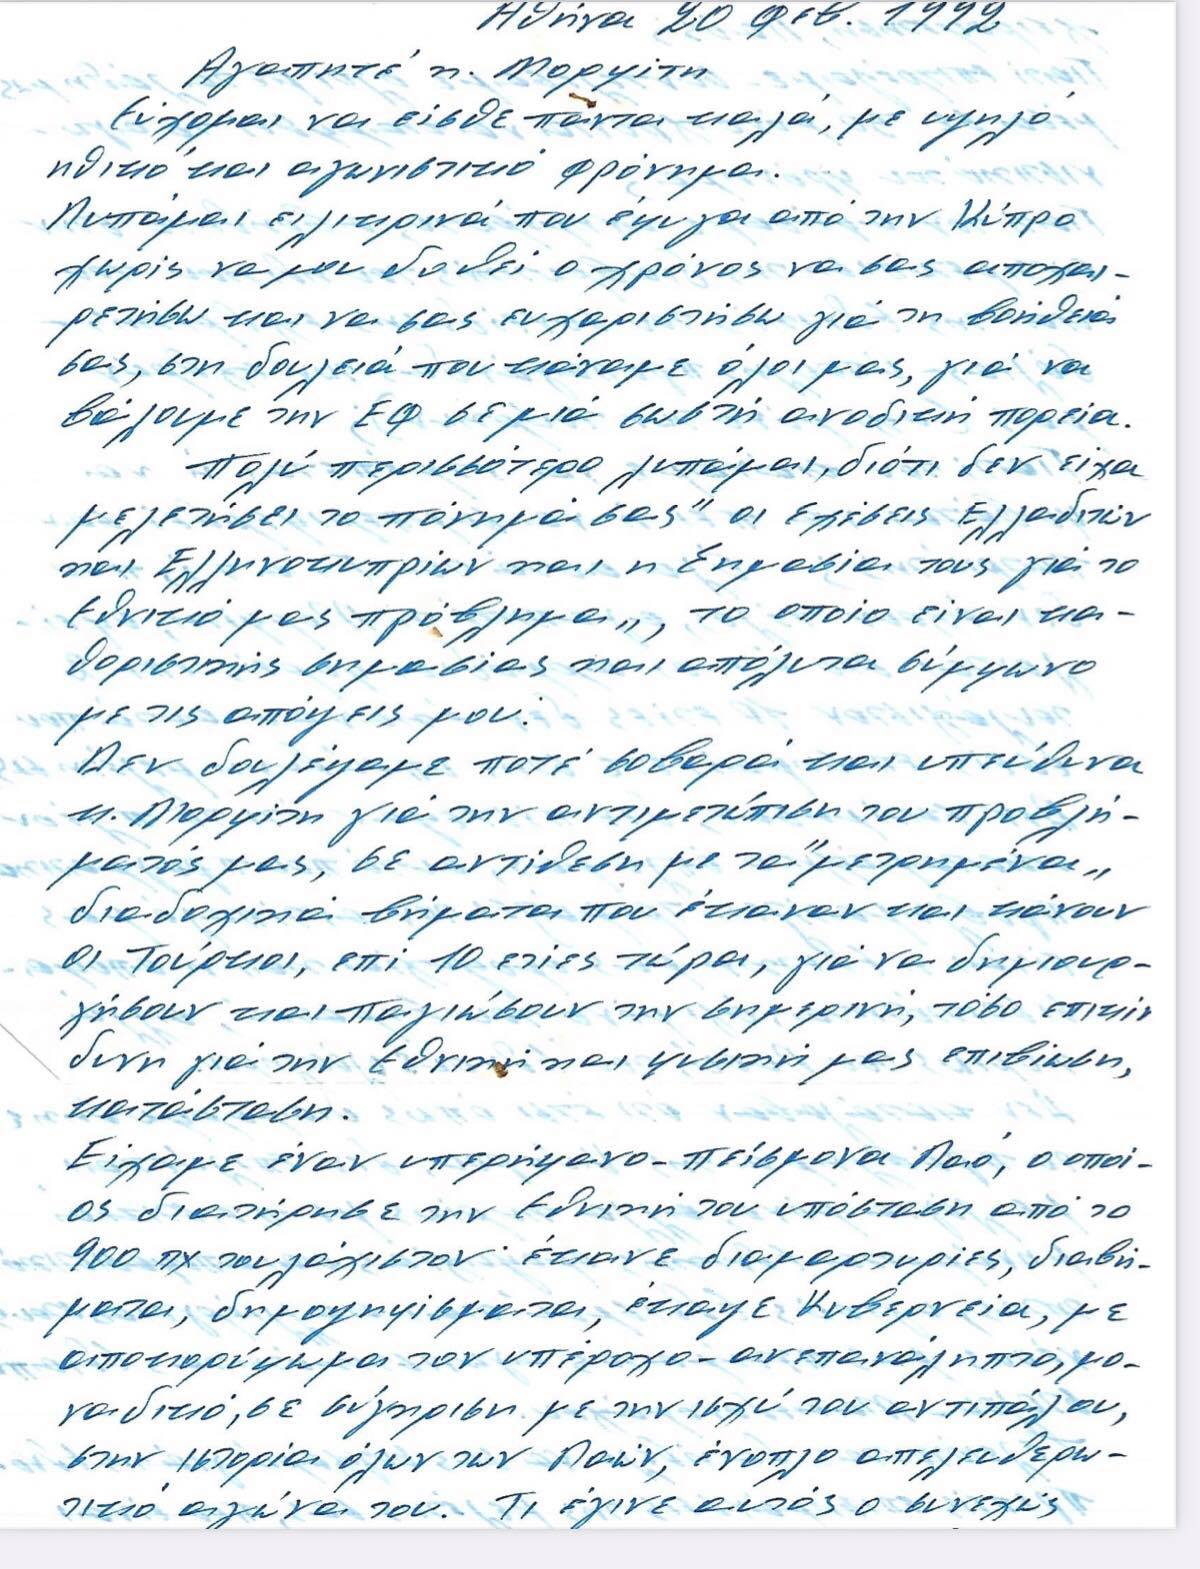 Αθήνα 20 Φεβ. 1992
Αγαπητέ κ. Μορφίτη
Εύχομαι να είσθε πάντα καλά, με υψηλό
ηθικό και αγωνιστικό φρόνημα.
Λυπάμαι ειλικρινά που έφυγα από την Κύπρο
χωρίς να μου δοθεί ο χρόνος να σας αποχαι-
ρετήσω και να σας ευχαριστήσω γιά τη βοήθειά
σας, στη δουλειά που κάναμε όλοι μας, γιά να
βάλουμε την ΕΦ σε μιά σωστή ανοδική πορεία.
Πολύ περισσότερο λυπάμαι, διότι δεν είχα
μελετήσει το πόνημά σας "οι σχέσεις Ελλαδιτών
και Ελληνοκυπρίων και η Σημασία τους γιά το
Εθνικό μας πρόβλημα", το οποίο είναι κα-
θοριστικής σημασίας και απόλυτα σύμφωνο
με τις απόψεις μου.
Δεν δουλέψαμε ποτέ σοβαρά και υπεύθυνα
κ. Μορφίτη γιά την αντιμετώπιση του προβλή-
ματός μας, σε αντίθεση με τα "μετρημένα"
διαδοχικά βήματα που έκαναν και κάνουν
οι Τούρκοι, επί 10 ετίες τώρα, γιά να δημιουρ-
γήσουν και παγιώσουν την σημερινή, τόσο επικίν
δυνη γιά την εθνική και φυσική μας επιβίωση,
κατάσταση.
Είχαμε έναν υπερήφανο-πείσμονα Λαό, ο οποί-
ος διατήρησε την Εθνική του υπόσταση από το
900 πχ τουλάχιστον· έκανε διαμαρτυρίες, διαβή-
ματα, δημοψηφίσματα, έκαψε Κυβερνεία, με
αποκορύφωμα τον υπέροχο-ανεπανάληπτο, μο-
ναδικό, σε σύγκριση με την ισχύ του αντιπάλου,
στην Ιστορία όλων των Λαών, ένοπλο απελευθερω-
τικό αγώνα του. Τι έγινε αυτός ο συνεχώς